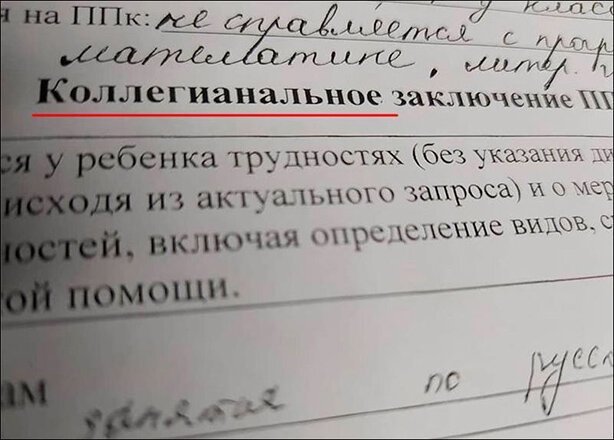 на ППк: не справляется с
математике, литер.
Коллегианальное заключение
ся у ребенка трудностях (без указания
исходя из актуального запроса) и о мер
ностей, включая определение видов, с
ой помощи.
ам занятия по русс